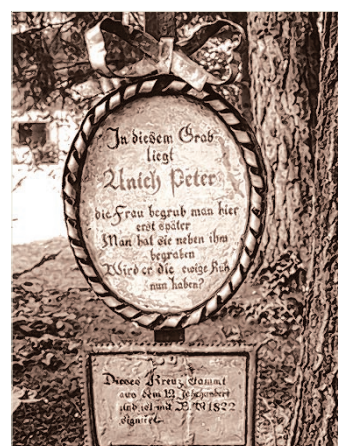 In diesem Grab
liegt
Anich Peter
die Frau begrub man hier
erst später
Man hat sie neben ihm
begraben
Wird er die ewige Ruh
nun haben?
Dieses Kreuz stammt
aus dem 19. Jahrhundert
und ist mit 1822
signiert